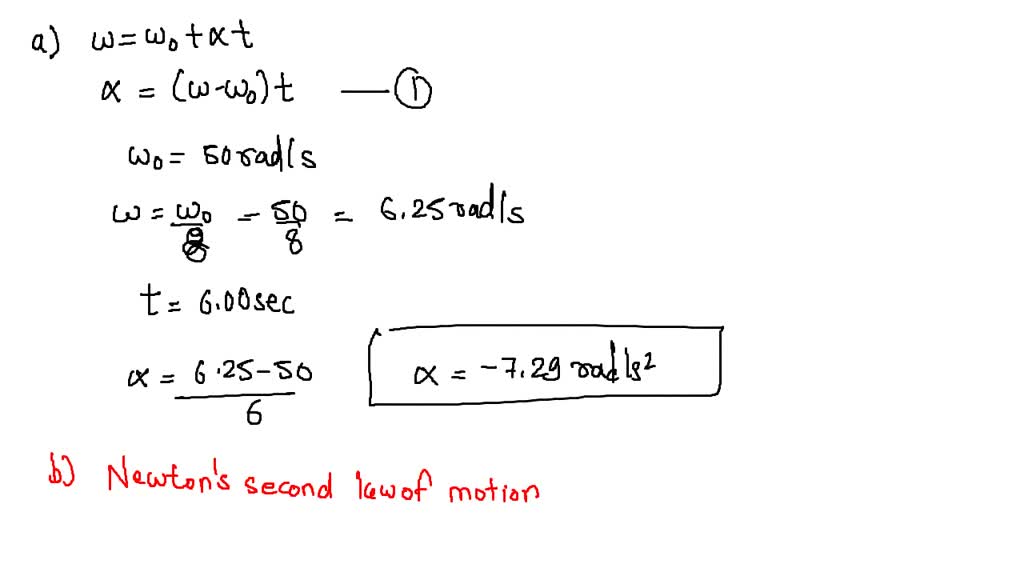 a) ω = ω₀ + αt
α = (ω-ω₀)t — ①
ω₀ = 50 rad/s
ω = ω₀/8 - 50/8 = 6.25 rad/s
t = 6.00 sec
α = 6.25-50/6
α = -7.29 rad/s²
b) Newton's second law of motion